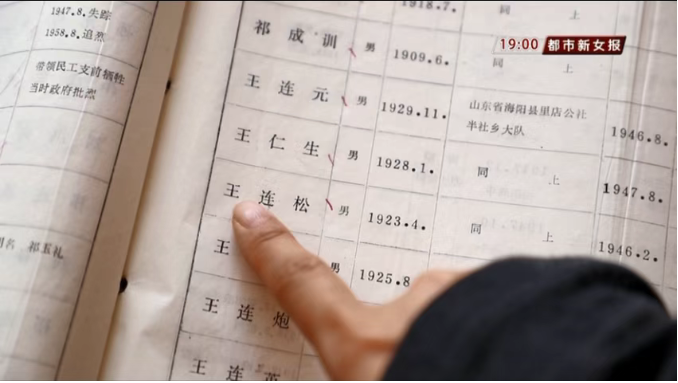 1947.8.失踪
1958.8.追烈
带领民工支前牺牲
当时政府批烈
别名 祁玉礼
1918.7. 同 上
19:00 都市新女报
祁成训 男 1909.6. 同 上
王连元 男 1929.11. 山东省海阳县里店公社
半社乡大队 1946.8.
王仁生 男 1928.1. 同 上 1947.8.
王连松 男 1923.4. 同 上 1946.2.
王 男 1925.8
王连炮
王连英